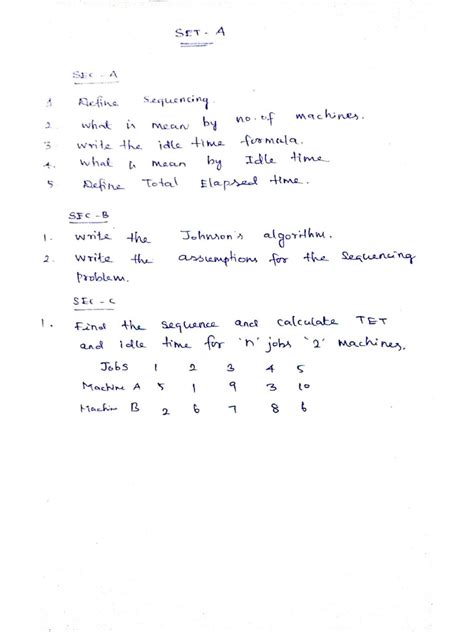 SET - A
SEC - A
1. Define Sequencing.
2. what is mean by no. of machines.
3. write the idle time formula.
4. what is mean by Idle time
5. Define Total Elapsed time.
SEC - B
1. write the Johnson's algorithm.
2. write the assumptions for the sequencing
Problem.
SEC - C
1. Find the sequence and calculate TET
and idle time for 'n' jobs '2' machines.
Jobs 1 2 3 4 5
Machine A 5 1 9 3 10
Machin B 2 6 7 8 6